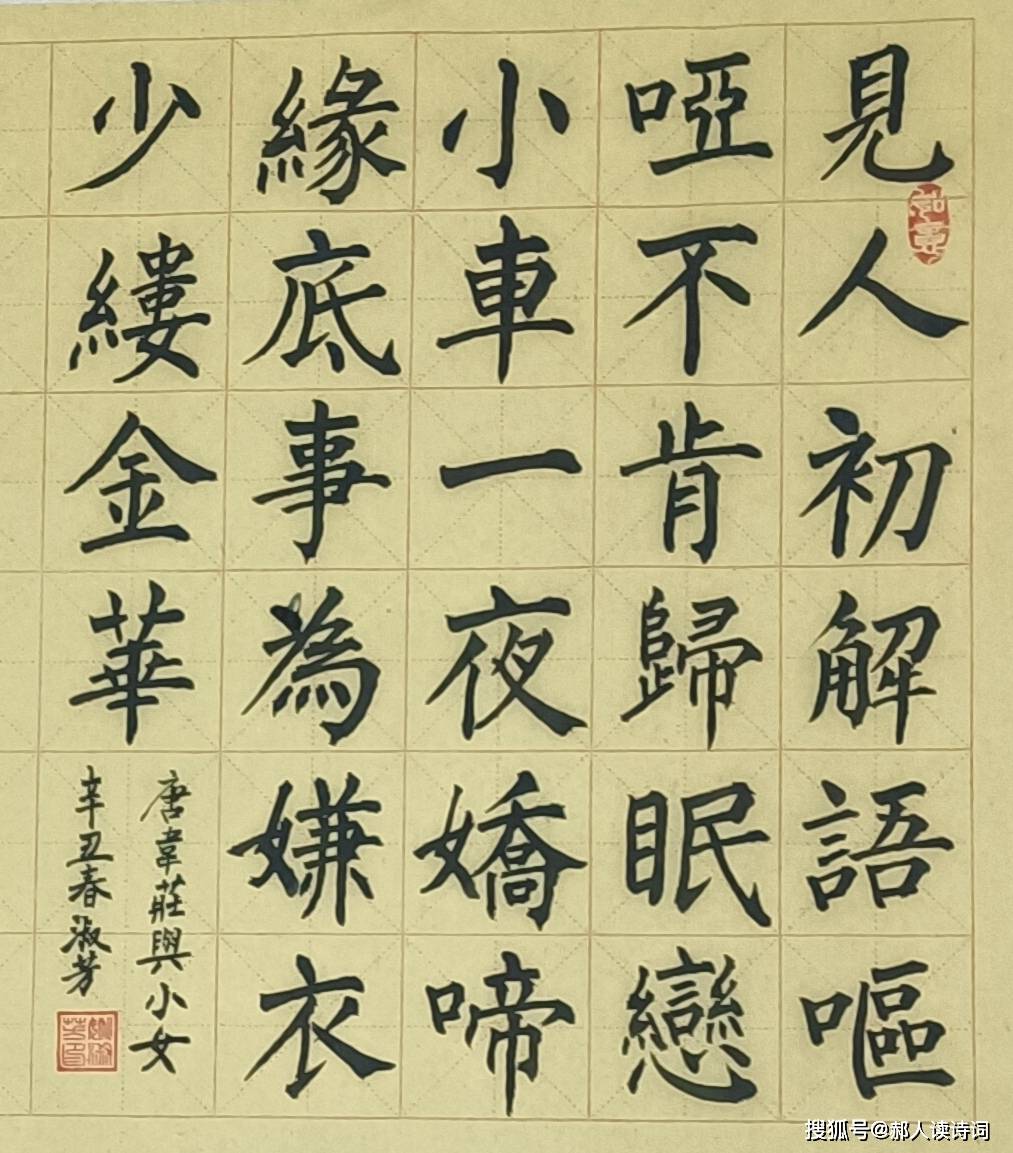 見人初解語嘔
啞不肯歸眠戀
小車一夜嬌啼
緣底事為嫌衣
少縷金華
唐韋莊與小女
辛丑春淑芳
如意
搜狐号@郝人读诗词